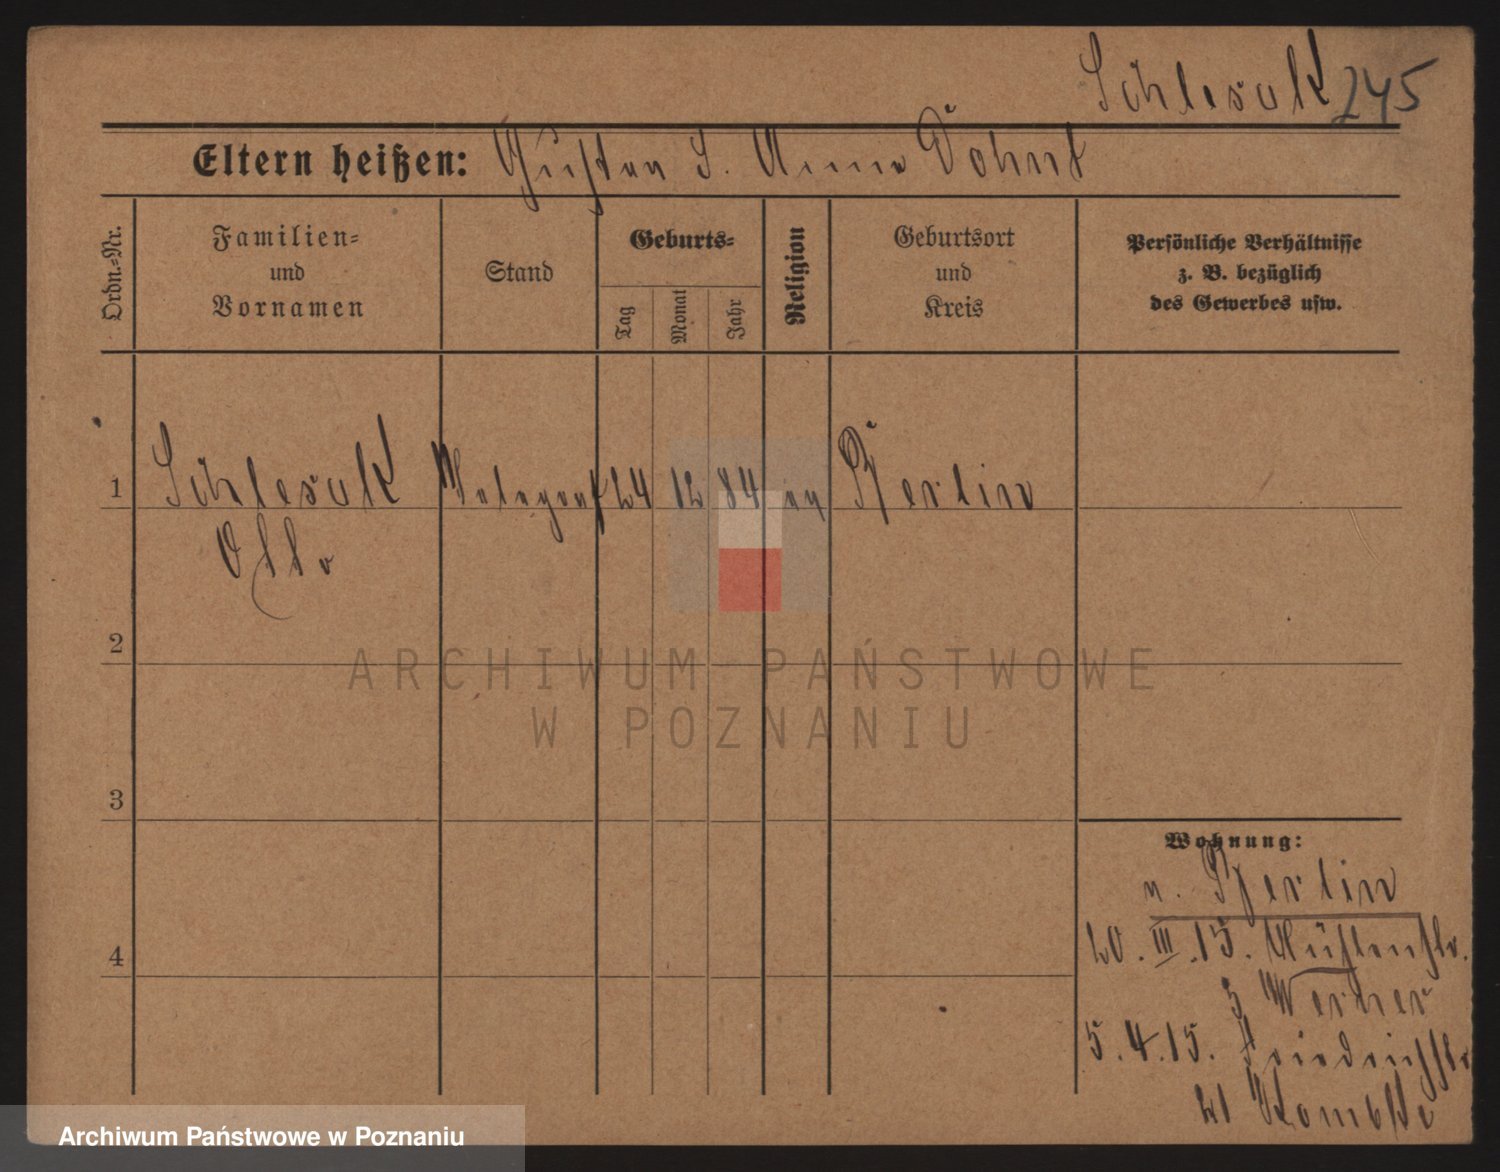 Schlesak 245
Eltern heißen: Gustav S. Anna Dohnt
Ordn.-Nr.
Familien-
und
Vornamen
Stand
Geburts-
Tag
Monat
Jahr
Religion
Geburtsort
und
Kreis
Persönliche Verhältnisse
z. B. bezüglich
des Gewerbes usw.
1 Schlesak 24 12 84 ev Berlin
Otto
2
3
4
Wohnung:
n. Berlin
20. III. 15.
3 Werner
5. 4. 15. Friedrichstr
21
ARCHIWUM PAŃSTWOWE
W POZNANIU
Archiwum Państwowe w Poznaniu